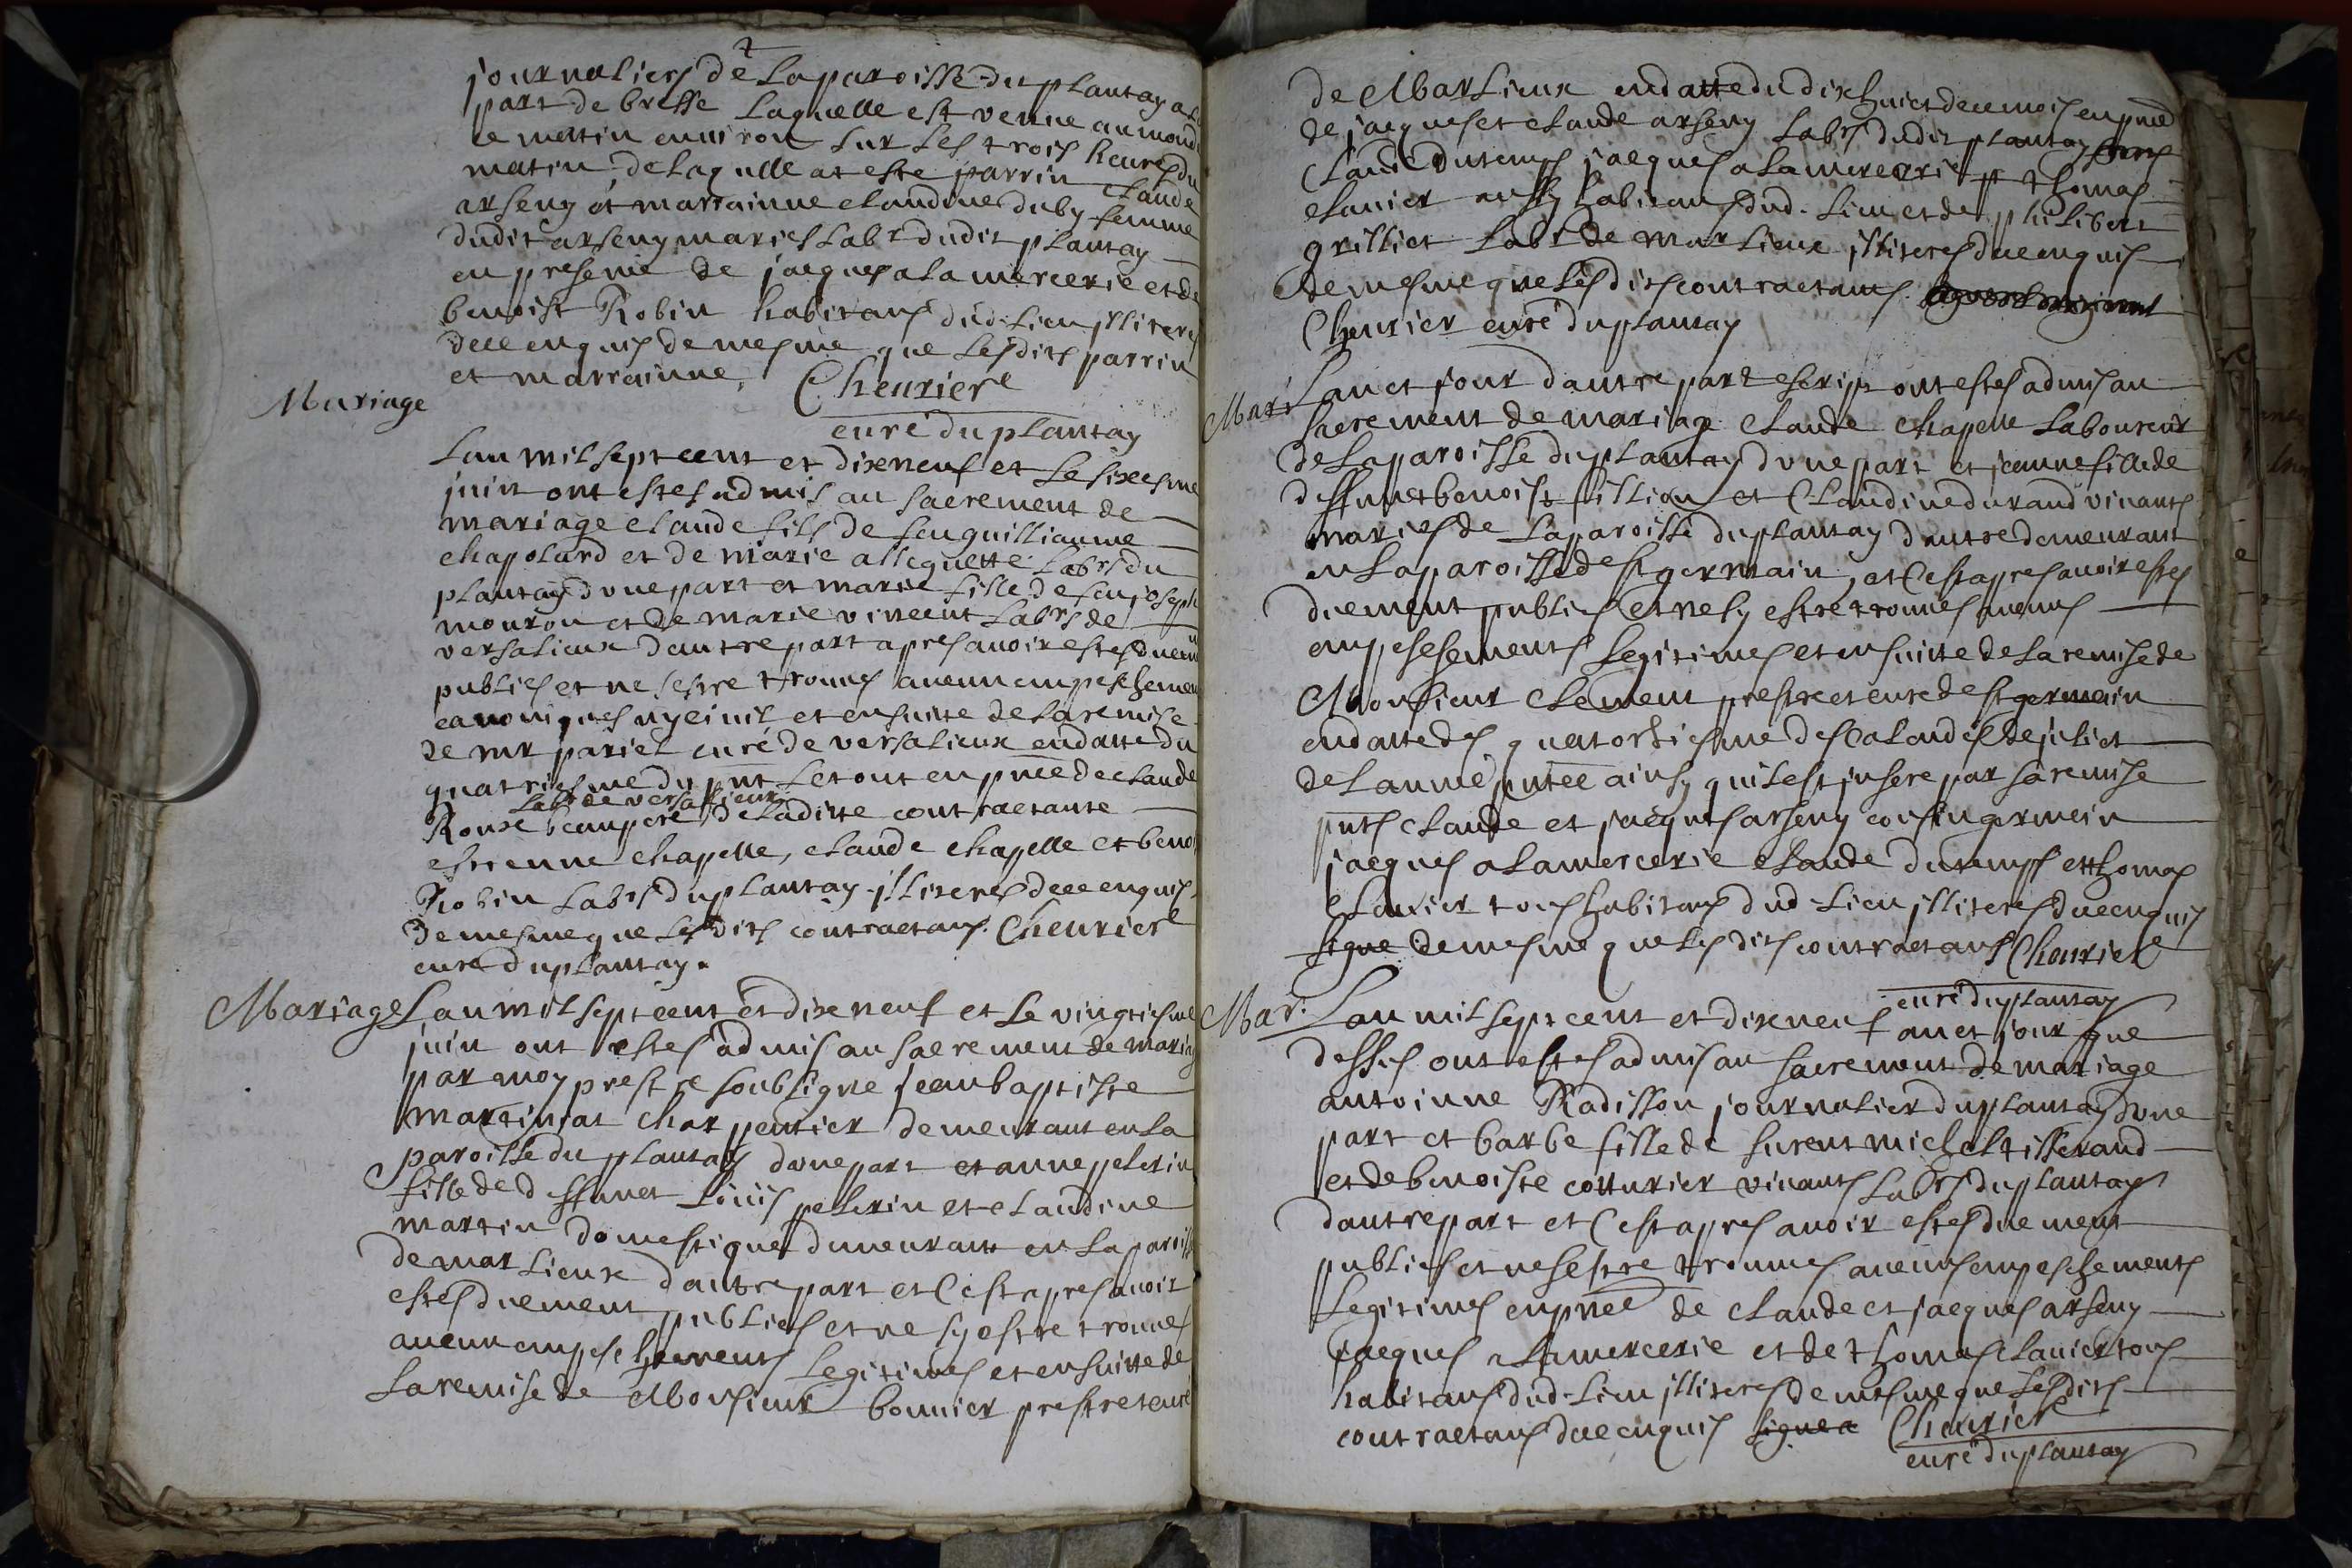 journaliers de la paroisse du plantay
part de bresse laquelle est venue au monde
le matin environ sur les trois heures du
matin, de laquelle at esté parrin claude
arseny et marrainne claudine duby femme
dudit arseny mariés labrs dudit plantay
en presence de jacques alamercerie et de
benoist Robin habitans dud. lieu illiteres
de ce enquis de mesme que lesdits parrin
et marrainne, Cheurier
curé du plantay
Mariage
Lan mil sept cent et dixneuf et le sixesme
juin ont estes admis au sacrement de
mariage claude fils de feu guilliaume
chapolard et de marie allequette labrs du
plantay dvne part et marie fille de feu joseph
mouron et de marie vincent labrs de
versalieux dautre part apres auoir estes duem
publies et ne sestre trouués aucun empeschemen
canoniques ny ciuil et ensuitte de la remise
de mr pariel curé de versalieux en datte du
quatriesme du pnt le tout en pnce de claude
labr de versalieux
Roux beaupere de laditte contractante
estienne chapelle, claude chapelle et benoi
Robin labrs du plantay illiteres de ce enquis
de mesme que lesdits contractans. Cheurier
curé du plantay.
Mariage Lan mil sept cent et dixneuf et le vingtiesme
juin ont estes admis au sacrement de mariag
par moy prestre soubsigne jean baptiste
martinat charpentier demeurant en la
paroisse du plantay dvne part et anne pelerin
fille de deffunct Loüis pelerin et claudine
martin domestique demeurant en la paroiss
de marlieux dautre part et c'est apres auoir
estes duement publies et ne sy estre trouués
aucun empeschements legitimes et ensuitte de
la remise de Monsieur bonnier prestre et curé
de Marlieux en datte du dixhuict de ce mois en pnce
de jacques et claude arseny labrs dudit plantay
claude dutemps jacques alamercerie thomas
clauier aussy habitans dud. lieu et de philibert
grilliet labr de marlieux illiteres de ce enquis
de mesme que lesdits contractans.
Cheurier curé du plantay
Mari Lan et jour dautre part escript ont estes admis au
sacrement de mariage claude chapelle laboureur
de la paroisse du plantay dvne part et jeanne fille de
deffunct benoist fillion et Claudine durand viuants
maries de la paroisse du plantay dautre demeurant
en la paroisse de st germain, et c'est apres auoir estes
duement publies et ne sy estre trouués aucuns
empeschements legitimes et ensuitte de la remise de
Monsieur clement prestre et curé de st germain
en datte des quatorsiesme des calendes de juliet
de lannee pntee ainsy quil est insere par sa remise
pnts claude et jacques arseny cousin germain
jacques alamercerie claude dutemps et thomas
clauier tous habitans dud. lieu illiteres de ce enquis
signe de mesme que lesdits contractans Cheurier
curé du plantay
Mar. Lan mil sept cent et dixneuf an et jour que
dessus ont estes admis au sacrement de mariage
antoinne Radisson journalier du plantay dvne
part et barbe fille de furent michel tisserand
et de benoiste cotturier viuants labrs du plantay
dautre part et c'est apres auoir estes duement
publies et ne sestre trouués aucuns empeschements
legitimes en pnce de claude et jacques arseny
jacques alamercerie et de thomas clauier tous
habitans dud. lieu illiteres de mesme que lesdits
contractans de ce enquis signe Cheurier
curé du plantay